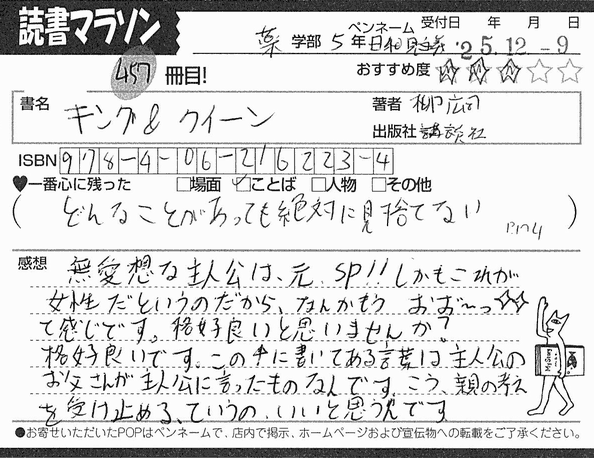 読書マラソン
457冊目!
受付日 年 月 日
ペンネーム
薬 学部 5年 日和見主義 '25.12-9
おすすめ度 ☆☆☆☆☆
書名
キング& クイーン
著者 柳広司
出版社 講談社
ISBN 978-4-06-216223-4
♥一番心に残った □場面 ☑ことば □人物 □その他
( どんなことがあっても絶対に見捨てない )
感想
無愛想な主人公は、元、SP!!しかもこれが
女性だというのだから、なんかもう おお~っ☆☆
て感じです。格好良いと思いませんか?
格好良いです。この↑に書いてある言葉は主人公の
お父さんが主人公に言ったものなんです。こう、親の考え
を受け止める、ていうの、いいと思うんです
●お寄せいただいたPOPはペンネームで、店内で掲示、ホームページおよび宣伝物への転載をご了承ください。